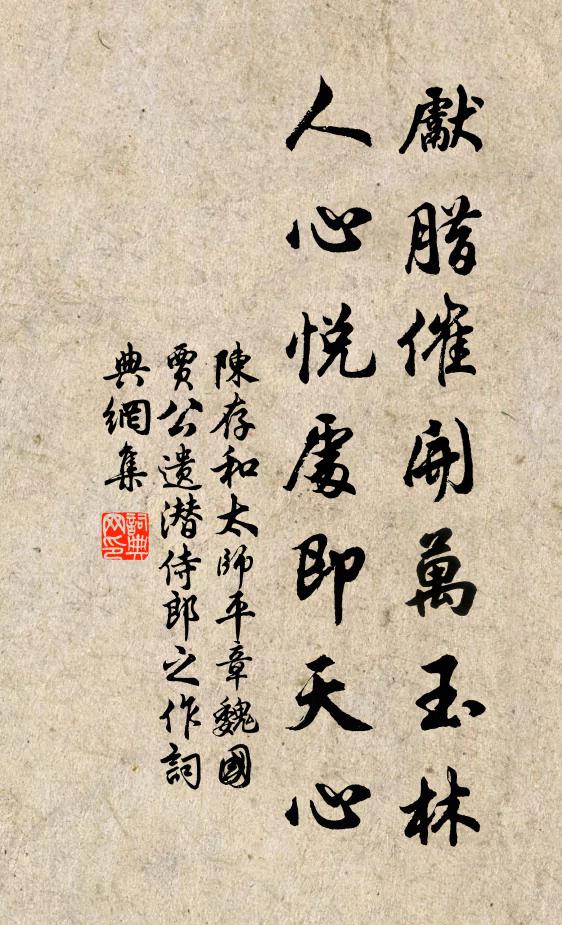 獻腊催開萬玉林
人心悅處即天心
陳存和太師平章魏國
賈公遺潛侍郎之作詞
典網集
詞典網印